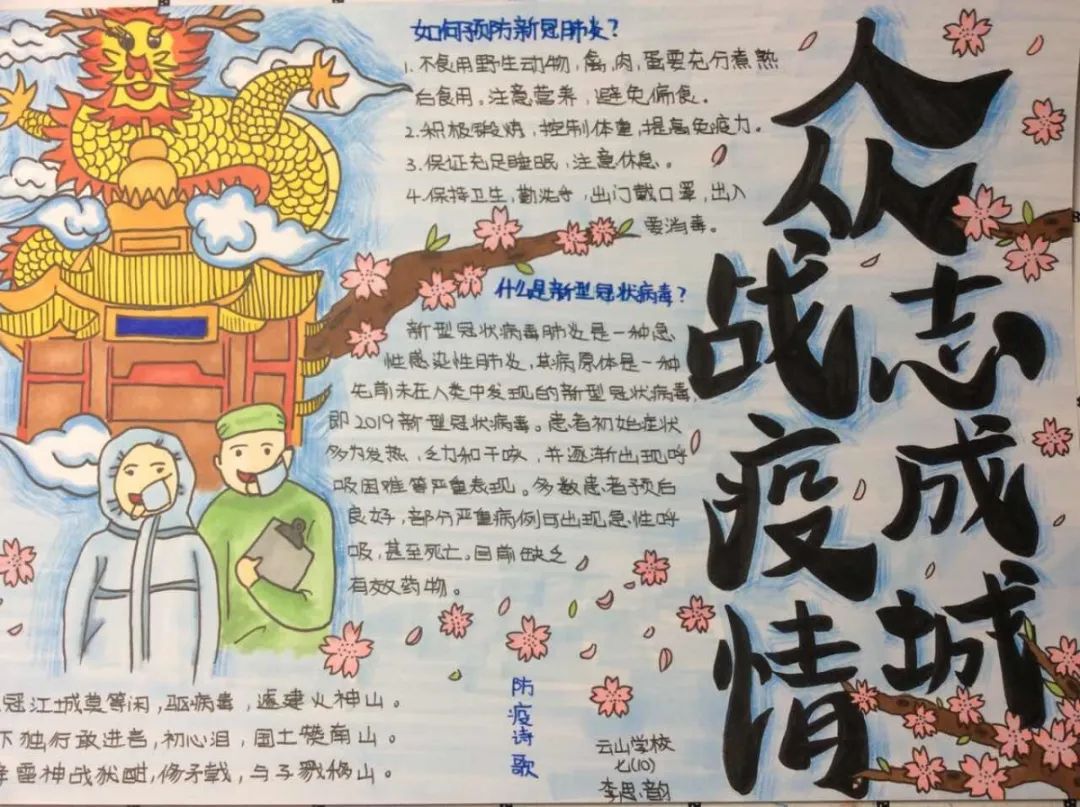 众志成城
战疫情
如何预防新冠肺炎？
1.不食用野生动物，禽，肉，蛋要充分煮熟
后食用。注意营养，避免偏食。
2.积极锻炼，控制体重，提高免疫力。
3.保证充足睡眠，注意休息。
4.保持卫生，勤洗手，出门戴口罩，出入
要消毒。
什么是新型冠状病毒？
新型冠状病毒肺炎是一种急
性感染性肺炎，其病原体是一种
先前未在人类中发现的新型冠状病毒，
即2019新型冠状病毒。患者初始症状
多为发热，乏力和干咳，并逐渐出现呼
吸困难等严重表现。多数患者预后
良好，部分严重病例可出现急性呼
吸，甚至死亡。目前缺乏
有效药物。
防疫诗歌
冠江城莫等闲，驱病毒，速建火神山。
独行敢进言，初心泪，国土赞南山。
雷神战犹酣，修矛戟，与子戮祸山。
云山学校
七(10)
李思韵